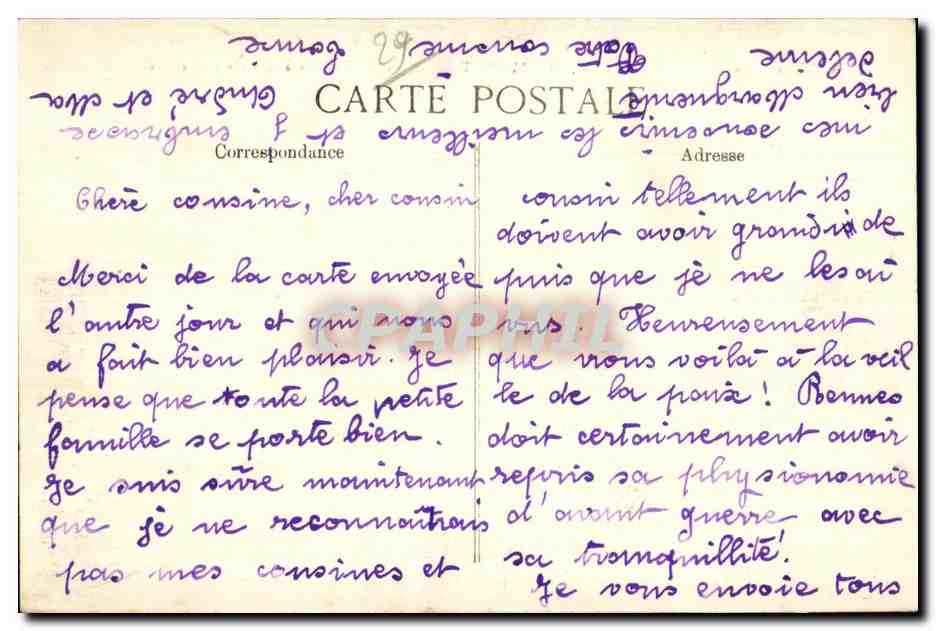 29
CARTE POSTALE
Correspondance
Adresse
Chère cousine, cher cousin
Merci de la carte envoyée
l'autre jour et qui nous
a fait bien plaisir. Je
pense que toute la petite
famille se porte bien.
Je suis sûre maintenant
que je ne reconnaîtrais
pas mes cousines et
cousin tellement ils
doivent avoir grandi de
puis que je ne les ai
vus. Heureusement
que nous voilà à la veil
le de la paix! Rennes
doit certainement avoir
repris sa physionomie
d'avant guerre avec
sa tranquillité!
Je vous envoie tous
mes souvenirs les meilleurs et j'embrasse
bien Marguerite, André et Ma
deleine Votre cousine
CPAPHIL